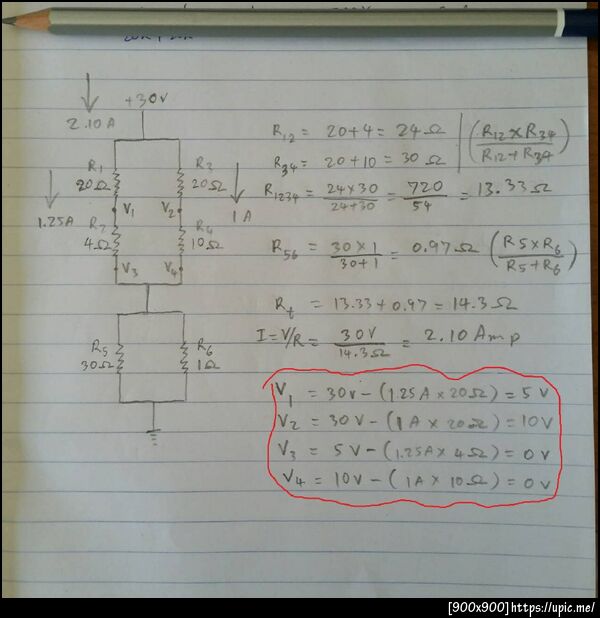 +30V
2.10A
R1
20Ω
R3
20Ω
1.25A
V1
V2
1A
R2
4Ω
R4
10Ω
V3
V4
R5
30Ω
R6
1Ω
R12 = 20+4 = 24Ω (R12 x R34 / R12 + R34)
R34 = 20+10 = 30Ω
R1234 = 24x30 / 24+30 = 720 / 54 = 13.33Ω
R56 = 30x1 / 30+1 = 0.97Ω (R5 x R6 / R5 + R6)
Rt = 13.33+0.97 = 14.3Ω
I = V/R = 30V / 14.3Ω = 2.10 Amp
V1 = 30V - (1.25A x 20Ω) = 5V
V2 = 30V - (1A x 20Ω) = 10V
V3 = 5V - (1.25A x 4Ω) = 0V
V4 = 10V - (1A x 10Ω) = 0V
[900x900] https://upic.me/